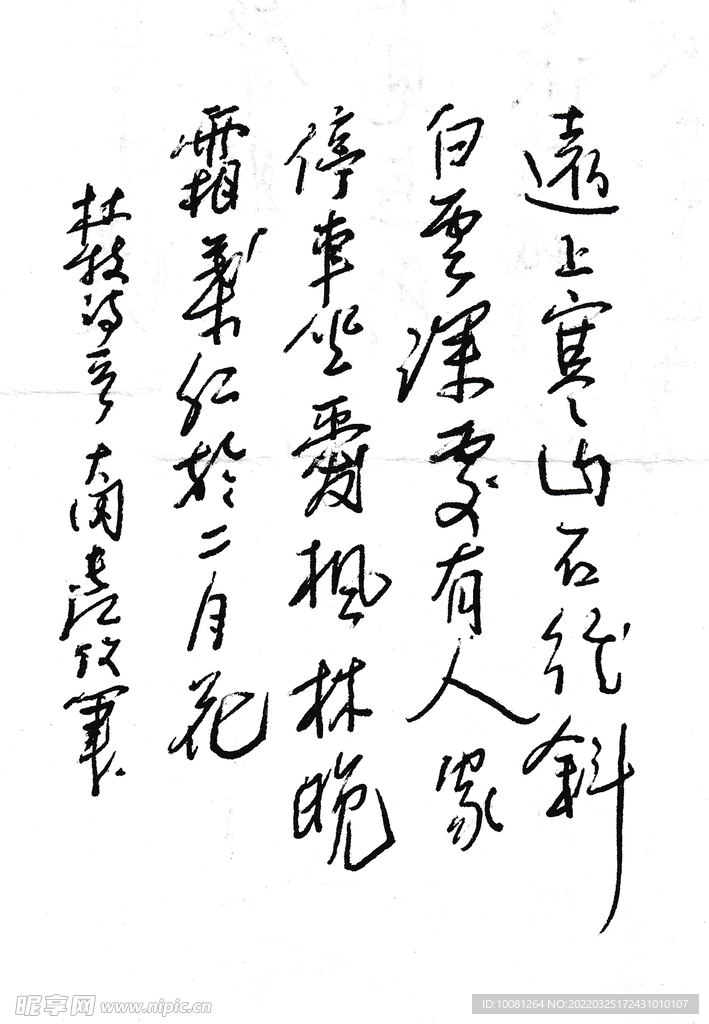 遠上寒山石徑斜
白雲深處有人家
停車坐愛楓林晚
霜葉红於二月花
杜牧诗
昵享网 www.nipic.cn
ID:10081264 NO:20220325172431010107